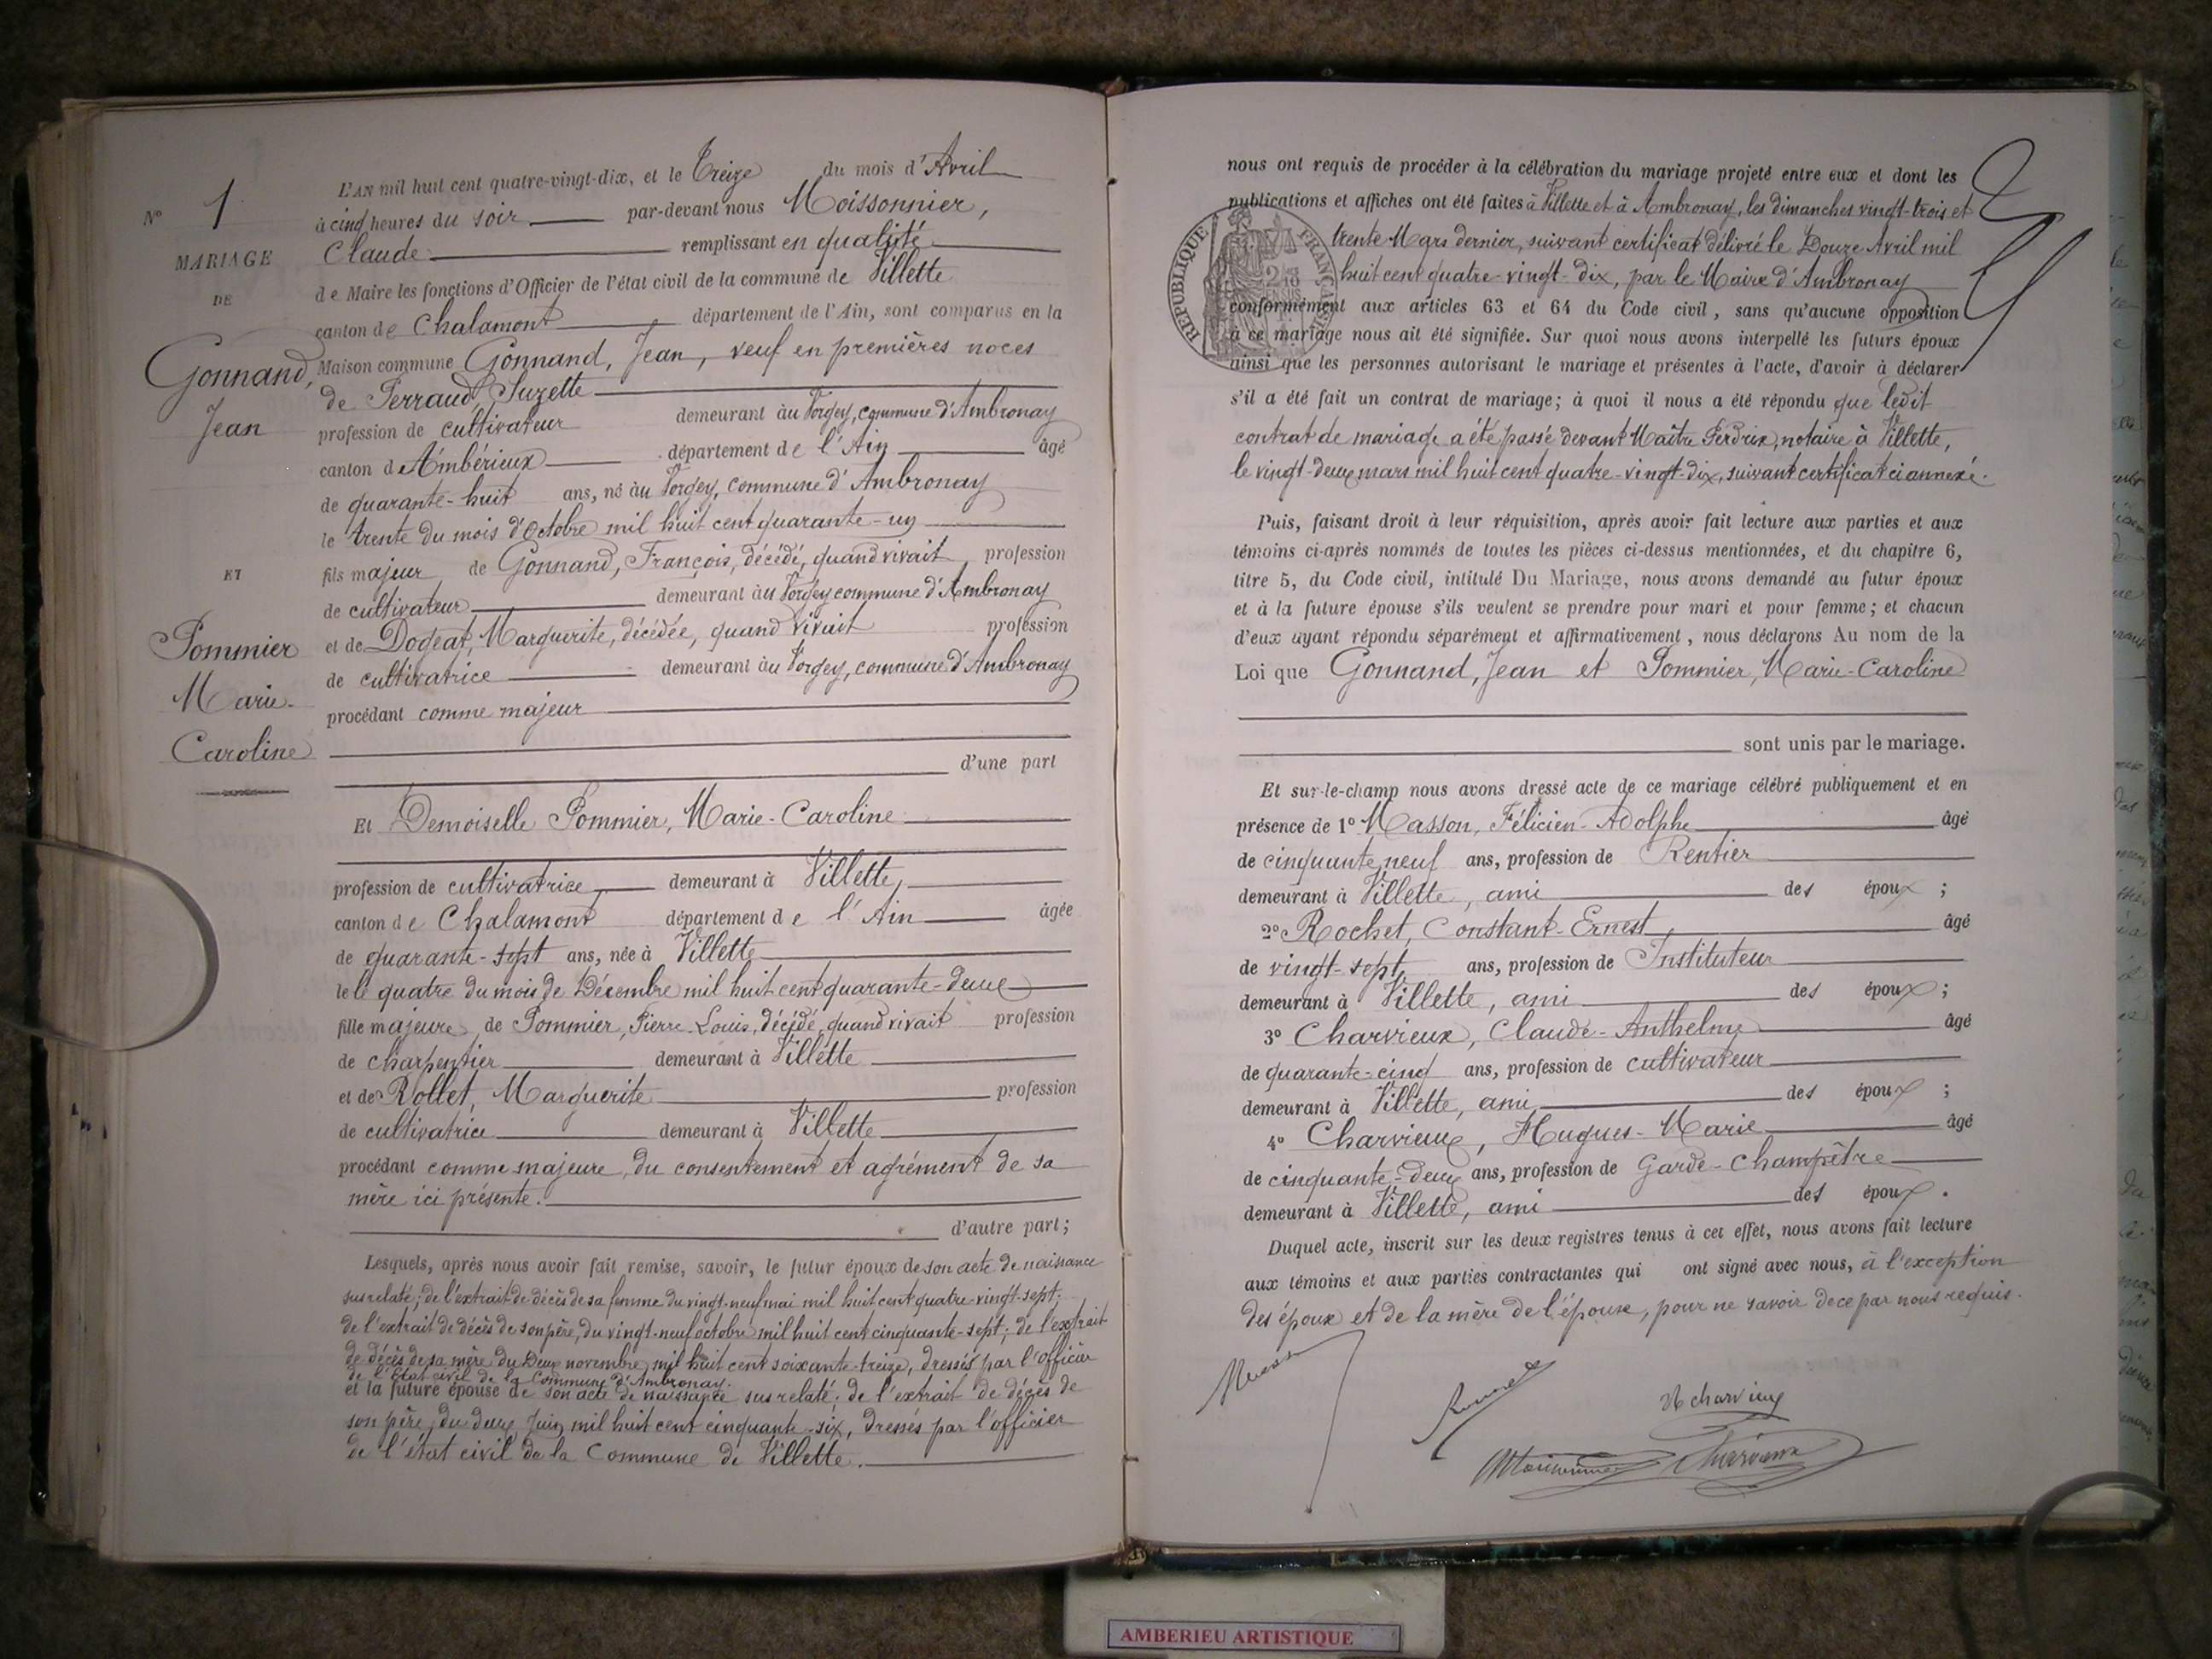 N° 1
MARIAGE
DE
Gonnand,
Jean
ET
Pommier
Marie-
Caroline
L'AN mil huit cent quatre-vingt-dix, et le Treize du mois d'Avril
à cinq heures du soir par-devant nous Moissonnier,
Claude remplissant en qualité
de Maire les fonctions d'Officier de l'état civil de la commune de Villette
canton de Chalamont département de l'Ain, sont comparus en la
Maison commune Gonnand, Jean, veuf en premières noces
de Perraud, Suzette
profession de cultivateur demeurant au Vorgey, commune d'Ambronay
canton d'Ambérieux département de l'Ain âgé
de quarante-huit ans, né au Vorgey, commune d'Ambronay
le trente du mois d'Octobre mil huit cent quarante-un
fils majeur de Gonnand, François, décédé, quand vivait profession
de cultivateur demeurant au Vorgey commune d'Ambronay
et de Dogeat, Marguerite, décédée, quand vivait profession
de cultivatrice demeurant au Vorgey, commune d'Ambronay
procédant comme majeur
d'une part
Et Demoiselle Pommier, Marie-Caroline
profession de cultivatrice demeurant à Villette,
canton de Chalamont département de l'Ain âgée
de quarante-sept ans, née à Villette
le le quatre du mois de Décembre mil huit cent quarante-deux
fille majeure de Pommier, Pierre-Louis, décédé, quand vivait profession
de charpentier demeurant à Villette
et de Rollet, Marguerite profession
de cultivatrice demeurant à Villette
procédant comme majeure, du consentement et agrément de sa
mère ici présente.
d'autre part;
Lesquels, après nous avoir fait remise, savoir, le futur époux de son acte de naissance
susrelaté; de l'extrait de décès de sa femme du vingt-neuf mai mil huit cent quatre-vingt-sept;
de l'extrait de décès de son père, du vingt-neuf octobre mil huit cent cinquante-sept; de l'extrait
de décès de sa mère du Deux novembre mil huit cent soixante-treize, dressés par l'officier
de l'état civil de la Commune d'Ambronay.
et la future épouse de son acte de naissance susrelaté; de l'extrait de décès de
son père, du deux Juin mil huit cent cinquante-six, dressés par l'officier
de l'état civil de la Commune de Villette.
nous ont requis de procéder à la célébration du mariage projeté entre eux et dont les
publications et affiches ont été faites à Villette et à Ambronay, les dimanches vingt-trois et
trente Mars dernier, suivant certificat délivré le Douze Avril mil
huit cent quatre-vingt-dix, par le Maire d'Ambronay
RÉPUBLIQUE FRANÇAISE
conformément aux articles 63 et 64 du Code civil, sans qu'aucune opposition
à ce mariage nous ait été signifiée. Sur quoi nous avons interpellé les futurs époux
ainsi que les personnes autorisant le mariage et présentes à l'acte, d'avoir à déclarer
s'il a été fait un contrat de mariage; à quoi il nous a été répondu que ledit
contrat de mariage a été passé devant Maître Perdrix, notaire à Villette,
le vingt-deux mars mil huit cent quatre-vingt-dix, suivant certificat ci annexé.
Puis, faisant droit à leur réquisition, après avoir fait lecture aux parties et aux
témoins ci-après nommés de toutes les pièces ci-dessus mentionnées, et du chapitre 6,
titre 5, du Code civil, intitulé Du Mariage, nous avons demandé au futur époux
et à la future épouse s'ils veulent se prendre pour mari et pour femme; et chacun
d'eux ayant répondu séparément et affirmativement, nous déclarons Au nom de la
Loi que Gonnand, Jean et Pommier, Marie-Caroline
sont unis par le mariage.
Et sur-le-champ nous avons dressé acte de ce mariage célébré publiquement et en
présence de 1° Masson, Félicien-Adolphe âgé
de cinquante neuf ans, profession de Rentier
demeurant à Villette, ami des époux ;
2° Rochet, Constant-Ernest âgé
de vingt-sept ans, profession de Instituteur
demeurant à Villette, ami des époux ;
3° Charvieux, Claude-Anthelme âgé
de quarante-cinq ans, profession de cultivateur
demeurant à Villette, ami des époux ;
4° Charvieux, Hugues-Marie âgé
de cinquante-deux ans, profession de Garde-Champêtre
demeurant à Villette, ami des époux.
Duquel acte, inscrit sur les deux registres tenus à cet effet, nous avons fait lecture
aux témoins et aux parties contractantes qui ont signé avec nous, à l'exception
des époux et de la mère de l'épouse, pour ne savoir de ce par nous requis.
H charvieux
Moissonnier Charvieux
AMBERIEU ARTISTIQUE